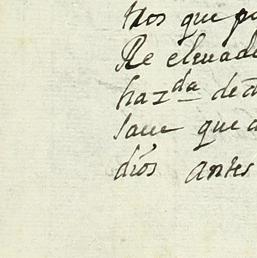 tros que po
Re eleuado
haz.da de a
saue que a
dios antes